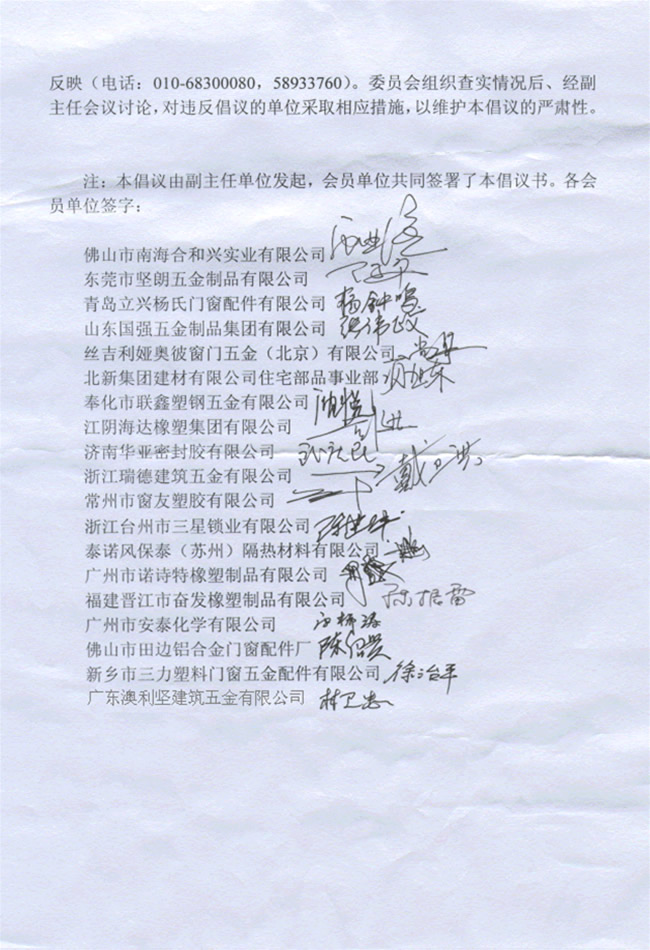 反映（电话：010-68300080，58933760）。委员会组织查实情况后、经副
主任会议讨论，对违反倡议的单位采取相应措施，以维护本倡议的严肃性。
注：本倡议由副主任单位发起，会员单位共同签署了本倡议书。各会
员单位签字：
佛山市南海合和兴实业有限公司
东莞市坚朗五金制品有限公司
青岛立兴杨氏门窗配件有限公司 杨钟鸣
山东国强五金制品集团有限公司
丝吉利娅奥彼窗门五金（北京）有限公司
北新集团建材有限公司住宅部品事业部
奉化市联鑫塑钢五金有限公司
江阴海达橡塑集团有限公司
济南华亚密封胶有限公司
浙江瑞德建筑五金有限公司
常州市窗友塑胶有限公司
浙江台州市三星锁业有限公司
泰诺风保泰（苏州）隔热材料有限公司
广州市诺诗特橡塑制品有限公司
福建晋江市奋发橡塑制品有限公司
广州市安泰化学有限公司
佛山市田边铝合金门窗配件厂
新乡市三力塑料门窗五金配件有限公司 徐治平
广东澳利坚建筑五金有限公司 林卫忠